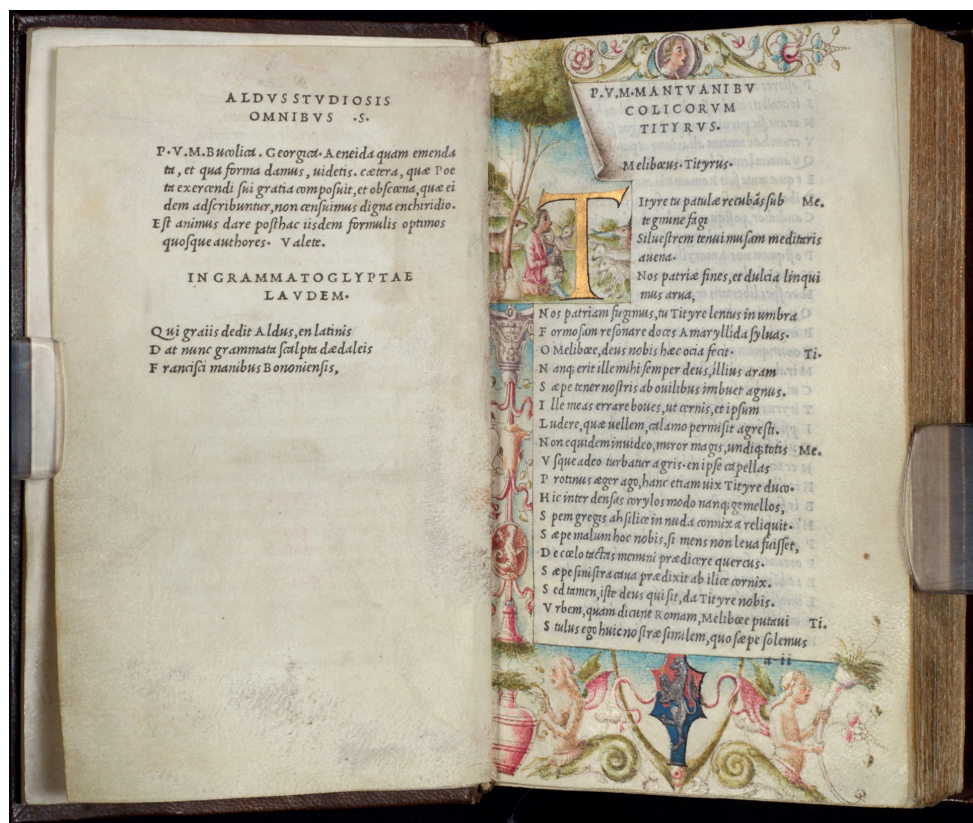 ALDVS STVDIOSIS
OMNIBVS ·S·
P·V·M·Bucolica. Georgica· Aeneida quam emenda
ta, et qua forma damus, uidetis. cætera, quæ Poe
ta exercendi sui gratia composuit, et obscœna, quæ ei
dem adscribuntur, non censuimus digna enchiridio.
Est animus dare posthac iisdem formulis optimos
quosque authores· Valete.
IN GRAMMATOGLYPTAE
LAVDEM·
Qui graiis dedit Aldus, en latinis
Dat nunc grammata scalpta dædaleis
Francisci manibus Bononiensis,
P.V.M·MANTVANI BV
COLICORVM
TITYRVS·
Melibœus·Tityrus·
Tityre tu patulæ recubãs sub Me.
tegmine fagi
Siluestrem tenui musam meditaris
auena·
Nos patriæ fines, et dulcia linqui
mus arua,
Nos patriam fugimus, tu Tityre lentus in umbra
Formosam resonare doces Amaryllida syluas·
O Melibœe, deus nobis hæc ocia fecit· Ti·
Nanq; erit ille mihi semper deus, illius aram
Sæpe tener nostris ab ouilibus imbuet agnus.
Ille meas errare boues, ut cernis, et ipsum
Ludere, quæ uellem, calamo permisit agresti.
Non equidem inuideo, miror magis, undiq; totis Me.
Vsque adeo turbatur agris· en ipse capellas
Protinus æger ago, hanc etiam uix Tityre duco·
Hic inter densas corylos modo nanq; gemellos,
Spem gregis ah silice in nuda connixa reliquit·
Sæpe malum hoc nobis, si mens non leua fuisset,
De cœlo tactas memini prædicere quercus·
Sæpe sinistra caua prædixit ab ilice cornix.
Sed tamen, iste deus qui sit, da Tityre nobis.
Vrbem, quam dicunt Romam, Melibœe putaui Ti.
Stulus ego huic nostræ similem, quo sæpe solemus
a ii